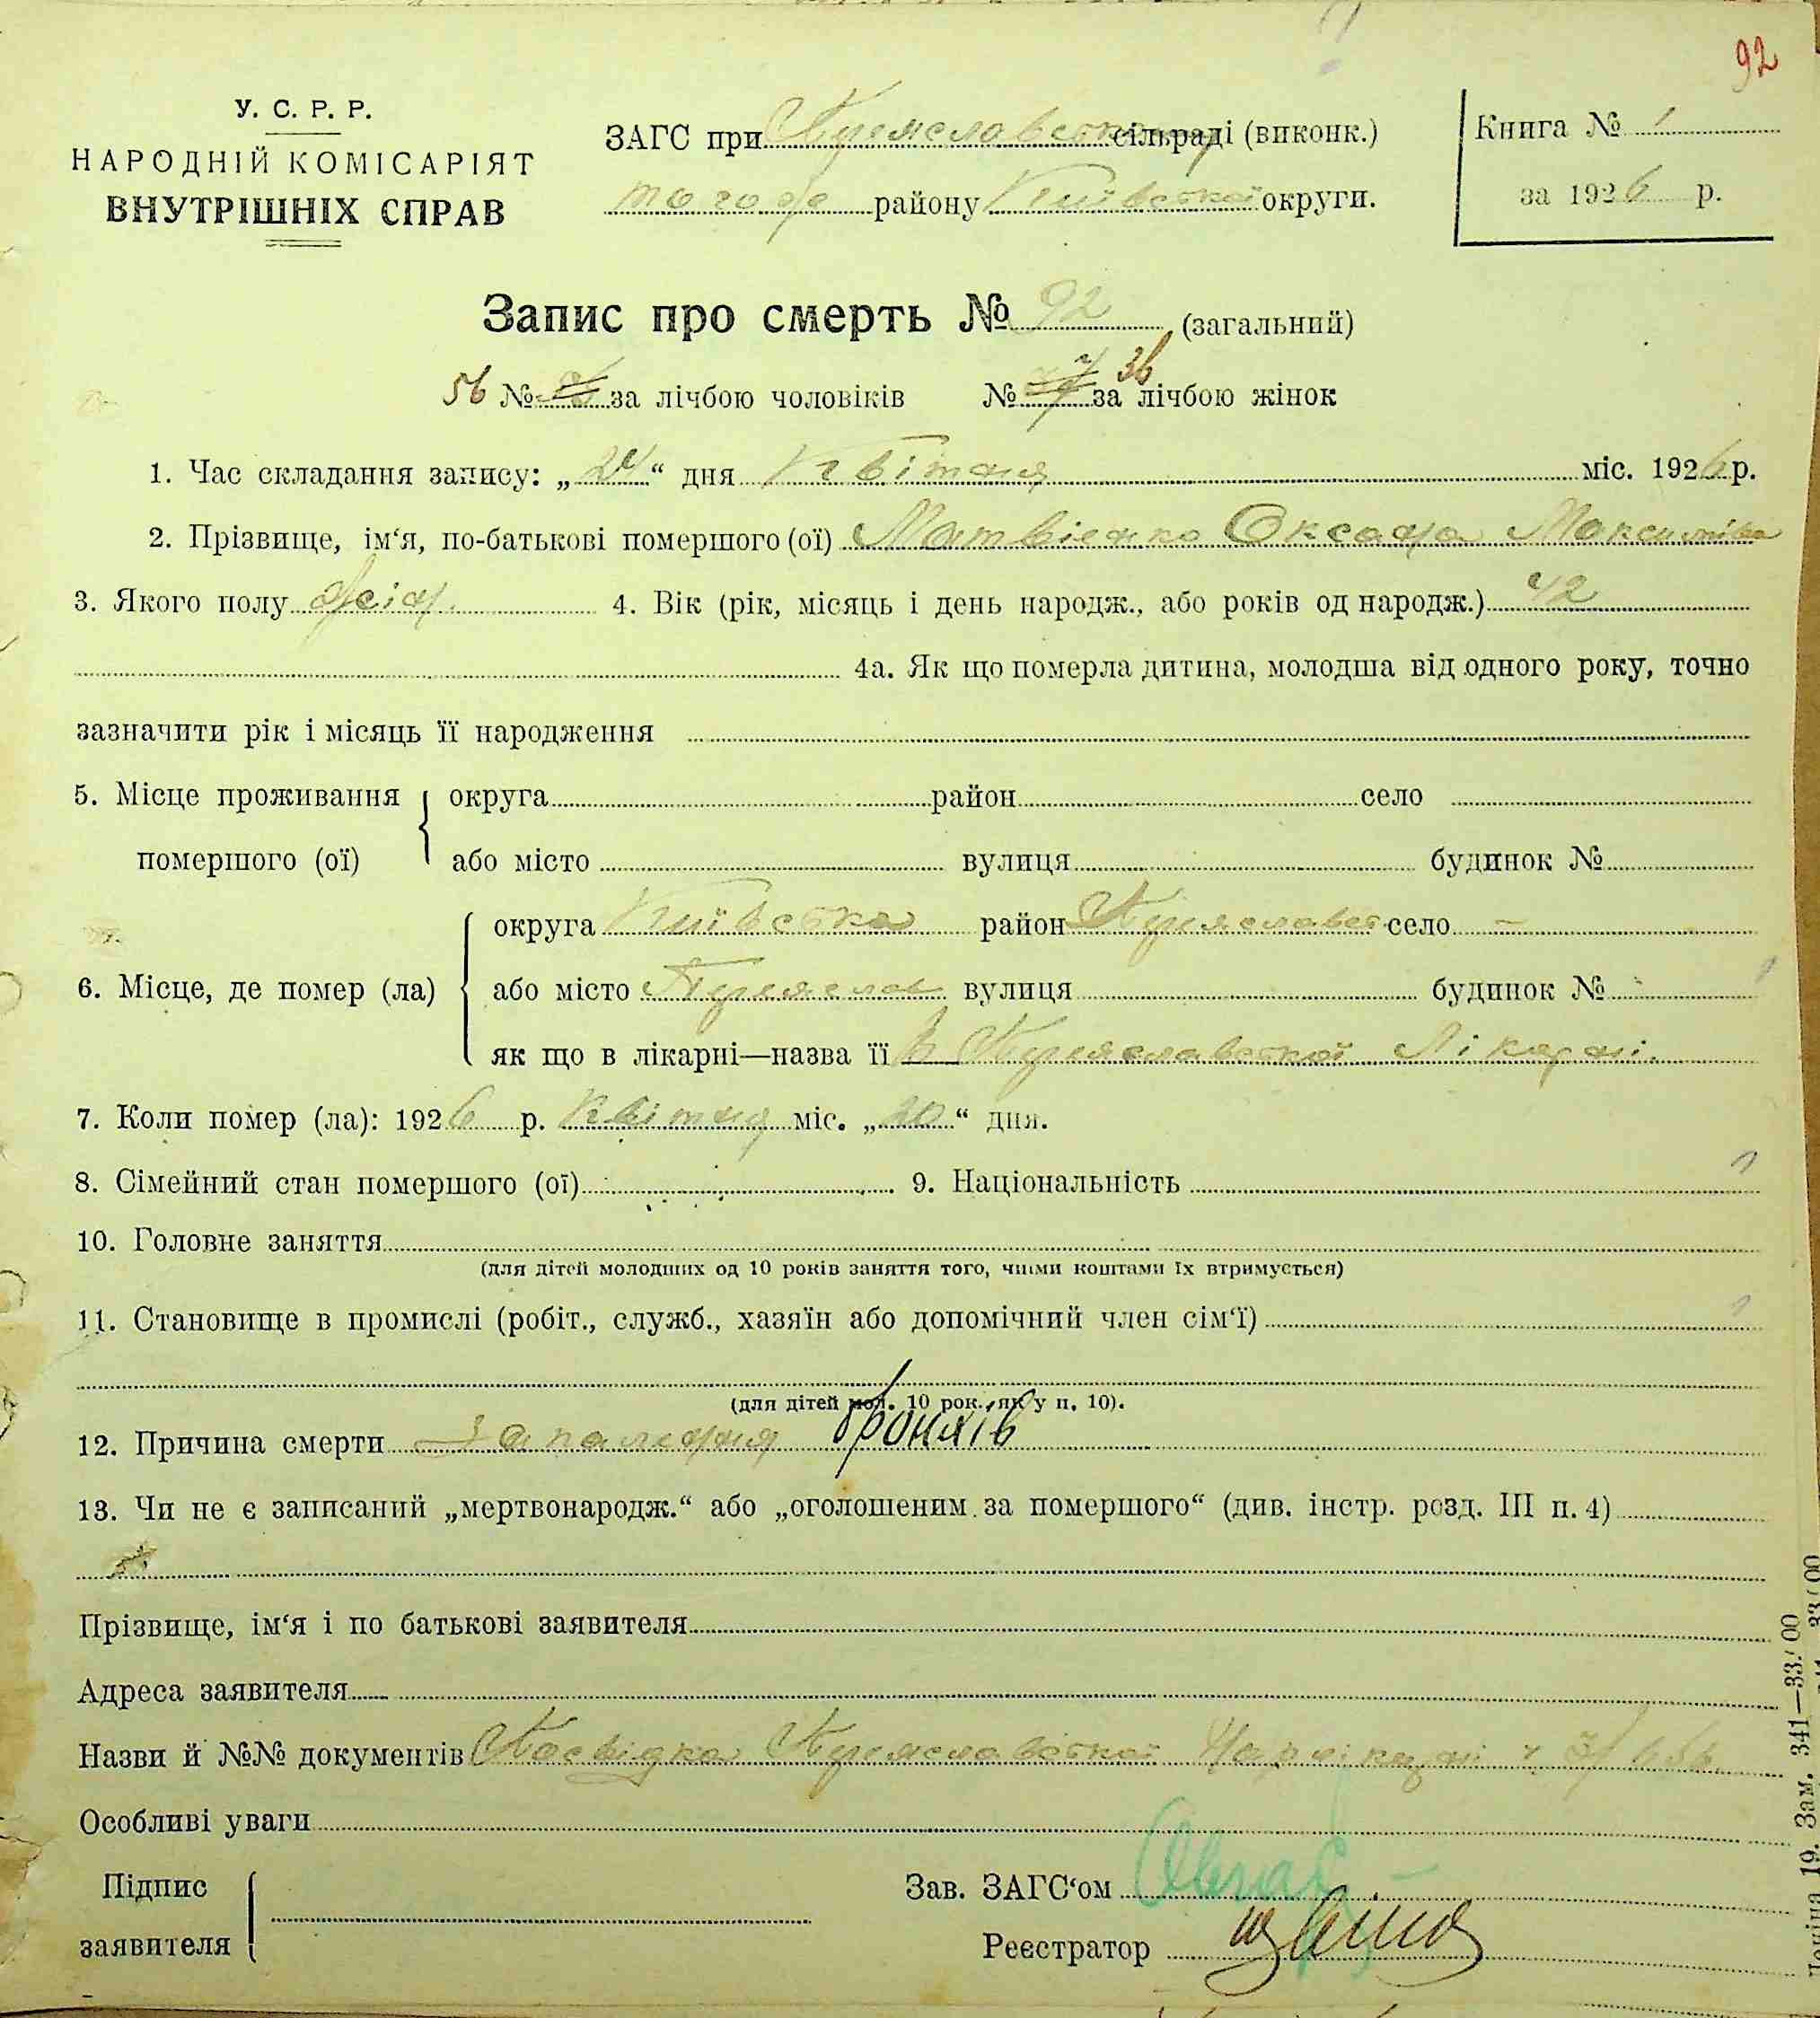 92
У. С. Р. Р.
НАРОДНІЙ КОМІСАРІЯТ
ВНУТРІШНІХ СПРАВ
ЗАГС при Переяславськ. сільраді (виконк.)
того ж району Київської округи.
Книга № 1
за 1926 р.
Запис про смерть № 92 (загальний)
56 № за лічбою чоловіків № 36 за лічбою жінок
1. Час складання запису: „24“ дня Квітня міс. 1926 р.
2. Прізвище, ім‘я, по-батькові помершого (ої) Матвієнко Оксана Максимівна
3. Якого полу жін. 4. Вік (рік, місяць і день народж., або років од народж.) 42
4а. Як що померла дитина, молодша від одного року, точно
зазначити рік і місяць її народження
5. Місце проживання помершого (ої) округа район село
або місто вулиця будинок №
6. Місце, де помер (ла) округа Київська район Переяславс. село –
або місто Переяслав вулиця будинок №
як що в лікарні—назва її в Переяславської Лікарні.
7. Коли помер (ла): 1926 р. Квітня міс. „20“ дня.
8. Сімейний стан помершого (ої) 9. Національність
10. Головне заняття
(для дітей молодших од 10 років заняття того, чиїми коштами їх втримується)
11. Становище в промислі (робіт., служб., хазяїн або допомічний член сім‘ї)
(для дітей мол. 10 рок., як у п. 10).
12. Причина смерти Запалення бронхів
13. Чи не є записаний „мертвонародж.“ або „оголошеним за помершого“ (див. інстр. розд. III п. 4)
Прізвище, ім‘я і по батькові заявителя
Адреса заявителя
Назви й №№ документів Посвідка Переяславської
Особливі уваги
Підпис заявителя
Зав. ЗАГС‘ом
Реєстратор
19. Зам. 341—33.00